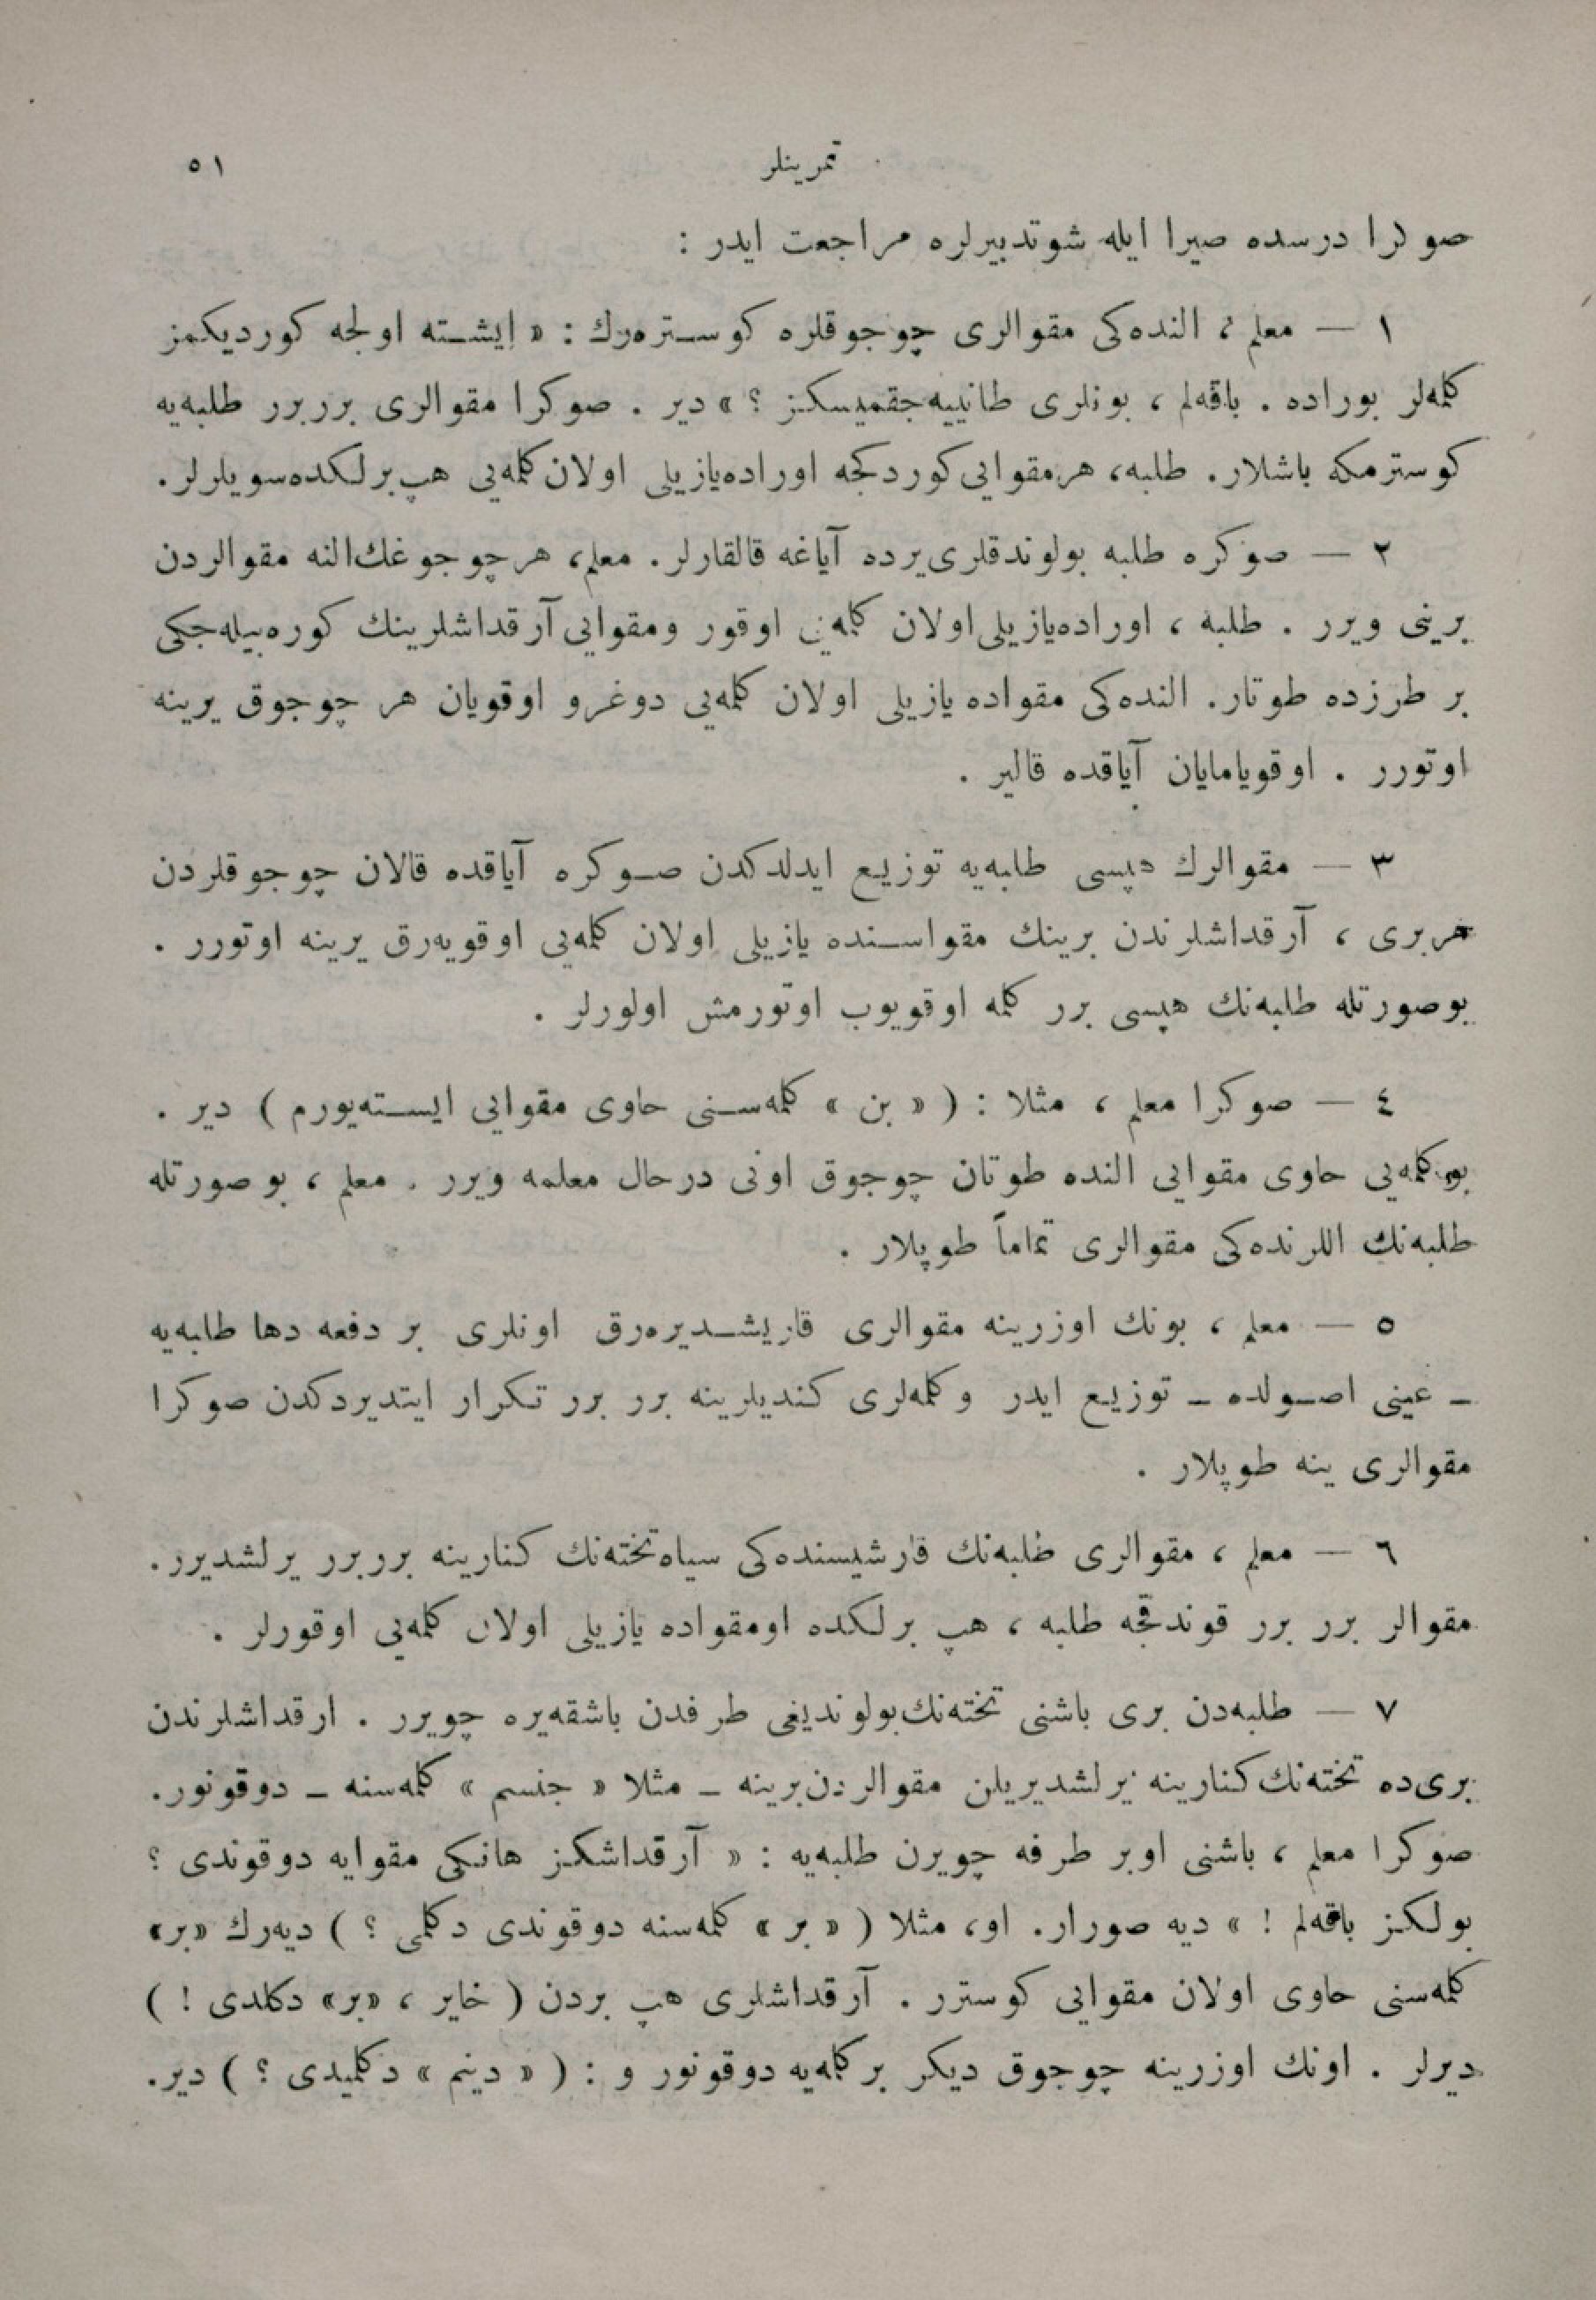 تمرینلر ٥١
صوكرا درسده صیرا ایله شوتدبیرلره مراجعت ایدر :
١ — معلم ، النده‌كی مقوالری چوجوقلره كوستره‌رك : « ایشته اولجه كوردیكمز
كله‌لر بوراده . باقه‌لم ، بونلری طانییه‌جقمیسكز ؟ » دیر . صوكرا مقوالری برربرر طلبه‌یه
كوسترمكه باشلار . طلبه ، هرمقوایی كوردكجه اوراده یازیلی اولان كله‌یی هپ برلكده سویلرلر .
٢ — صوكره طلبه بولوندقلری یرده آیاغه قالقارلر . معلم ، هرچوجوغك‌النه مقوالردن
برینی ویرر . طلبه ، اوراده یازیلی اولان كله‌یی اوقور ومقوایی آرقداشلرینك كوره‌بیله‌جكی
بر طرزده طوتار . النده‌كی مقواده یازیلی اولان كله‌یی دوغرو اوقویان هر چوجوق یرینه
اوتورر . اوقویامایان آیاقده قالیر .
٣ — مقوالرك هپسی طلبه‌یه توزیع ایدلدكدن صوكره آیاقده قالان چوجوقلردن
هربری ، آرقداشلرندن برینك مقواسنده یازیلی اولان كله‌یی اوقویه‌رق یرینه اوتورر .
بوصورتله طلبه‌نك هپسی برر كله اوقویوب اوتورمش اولورلر .
٤ — صوكرا معلم ، مثلا : ( « بن » كله‌سنی حاوی مقوایی ایسته‌یورم ) دیر .
بو كله‌یی حاوی مقوایی النده طوتان چوجوق اونی درحال معلمه ویرر . معلم ، بو صورتله
طلبه‌نك اللرنده‌كی مقوالری تماماً طوپلار .
٥ — معلم ، بونك اوزرینه مقوالری قاریشدیره‌رق اونلری بر دفعه دها طلبه‌یه
ـ عینی اصولده ـ توزیع ایدر وكله‌لری كندیلرینه برر برر تكرار ایتدیردكدن صوكرا
مقوالری ینه طوپلار .
٦ — معلم ، مقوالری طلبه‌نك قارشیسنده‌كی سیاه تخته‌نك كنارینه برربرر یرلشدیرر .
مقوالر برر برر قوندقجه طلبه ، هپ برلكده اومقواده یازیلی اولان كله‌یی اوقورلر .
٧ — طلبه‌دن بری باشنی تخته‌نك بولوندیغی طرفدن باشقه‌یره چویرر . ارقداشلرندن
بری‌ده تخته‌نك كنارینه یرلشدیریلن مقوالردن برینه ـ مثلا « جنسم » كله‌سنه ـ دوقونور .
صوكرا معلم ، باشنی اوبر طرفه چویرن طلبه‌یه : « آرقداشكز هانكی مقوایه دوقوندی ؟
بولكز باقه‌لم ! » دیه صورار . او ، مثلا ( « بر » كله‌سنه دوقوندی دكلمی ؟ ) دیه‌رك «بر»
كله‌سنی حاوی اولان مقوایی كوسترر . آرقداشلری هپ بردن ( خایر ، «بر» دكلدی ! )
دیرلر . اونك اوزرینه چوجوق دیكر بركله‌یه دوقونور و : ( « دینم » دكلمیدی ؟ ) دیر .